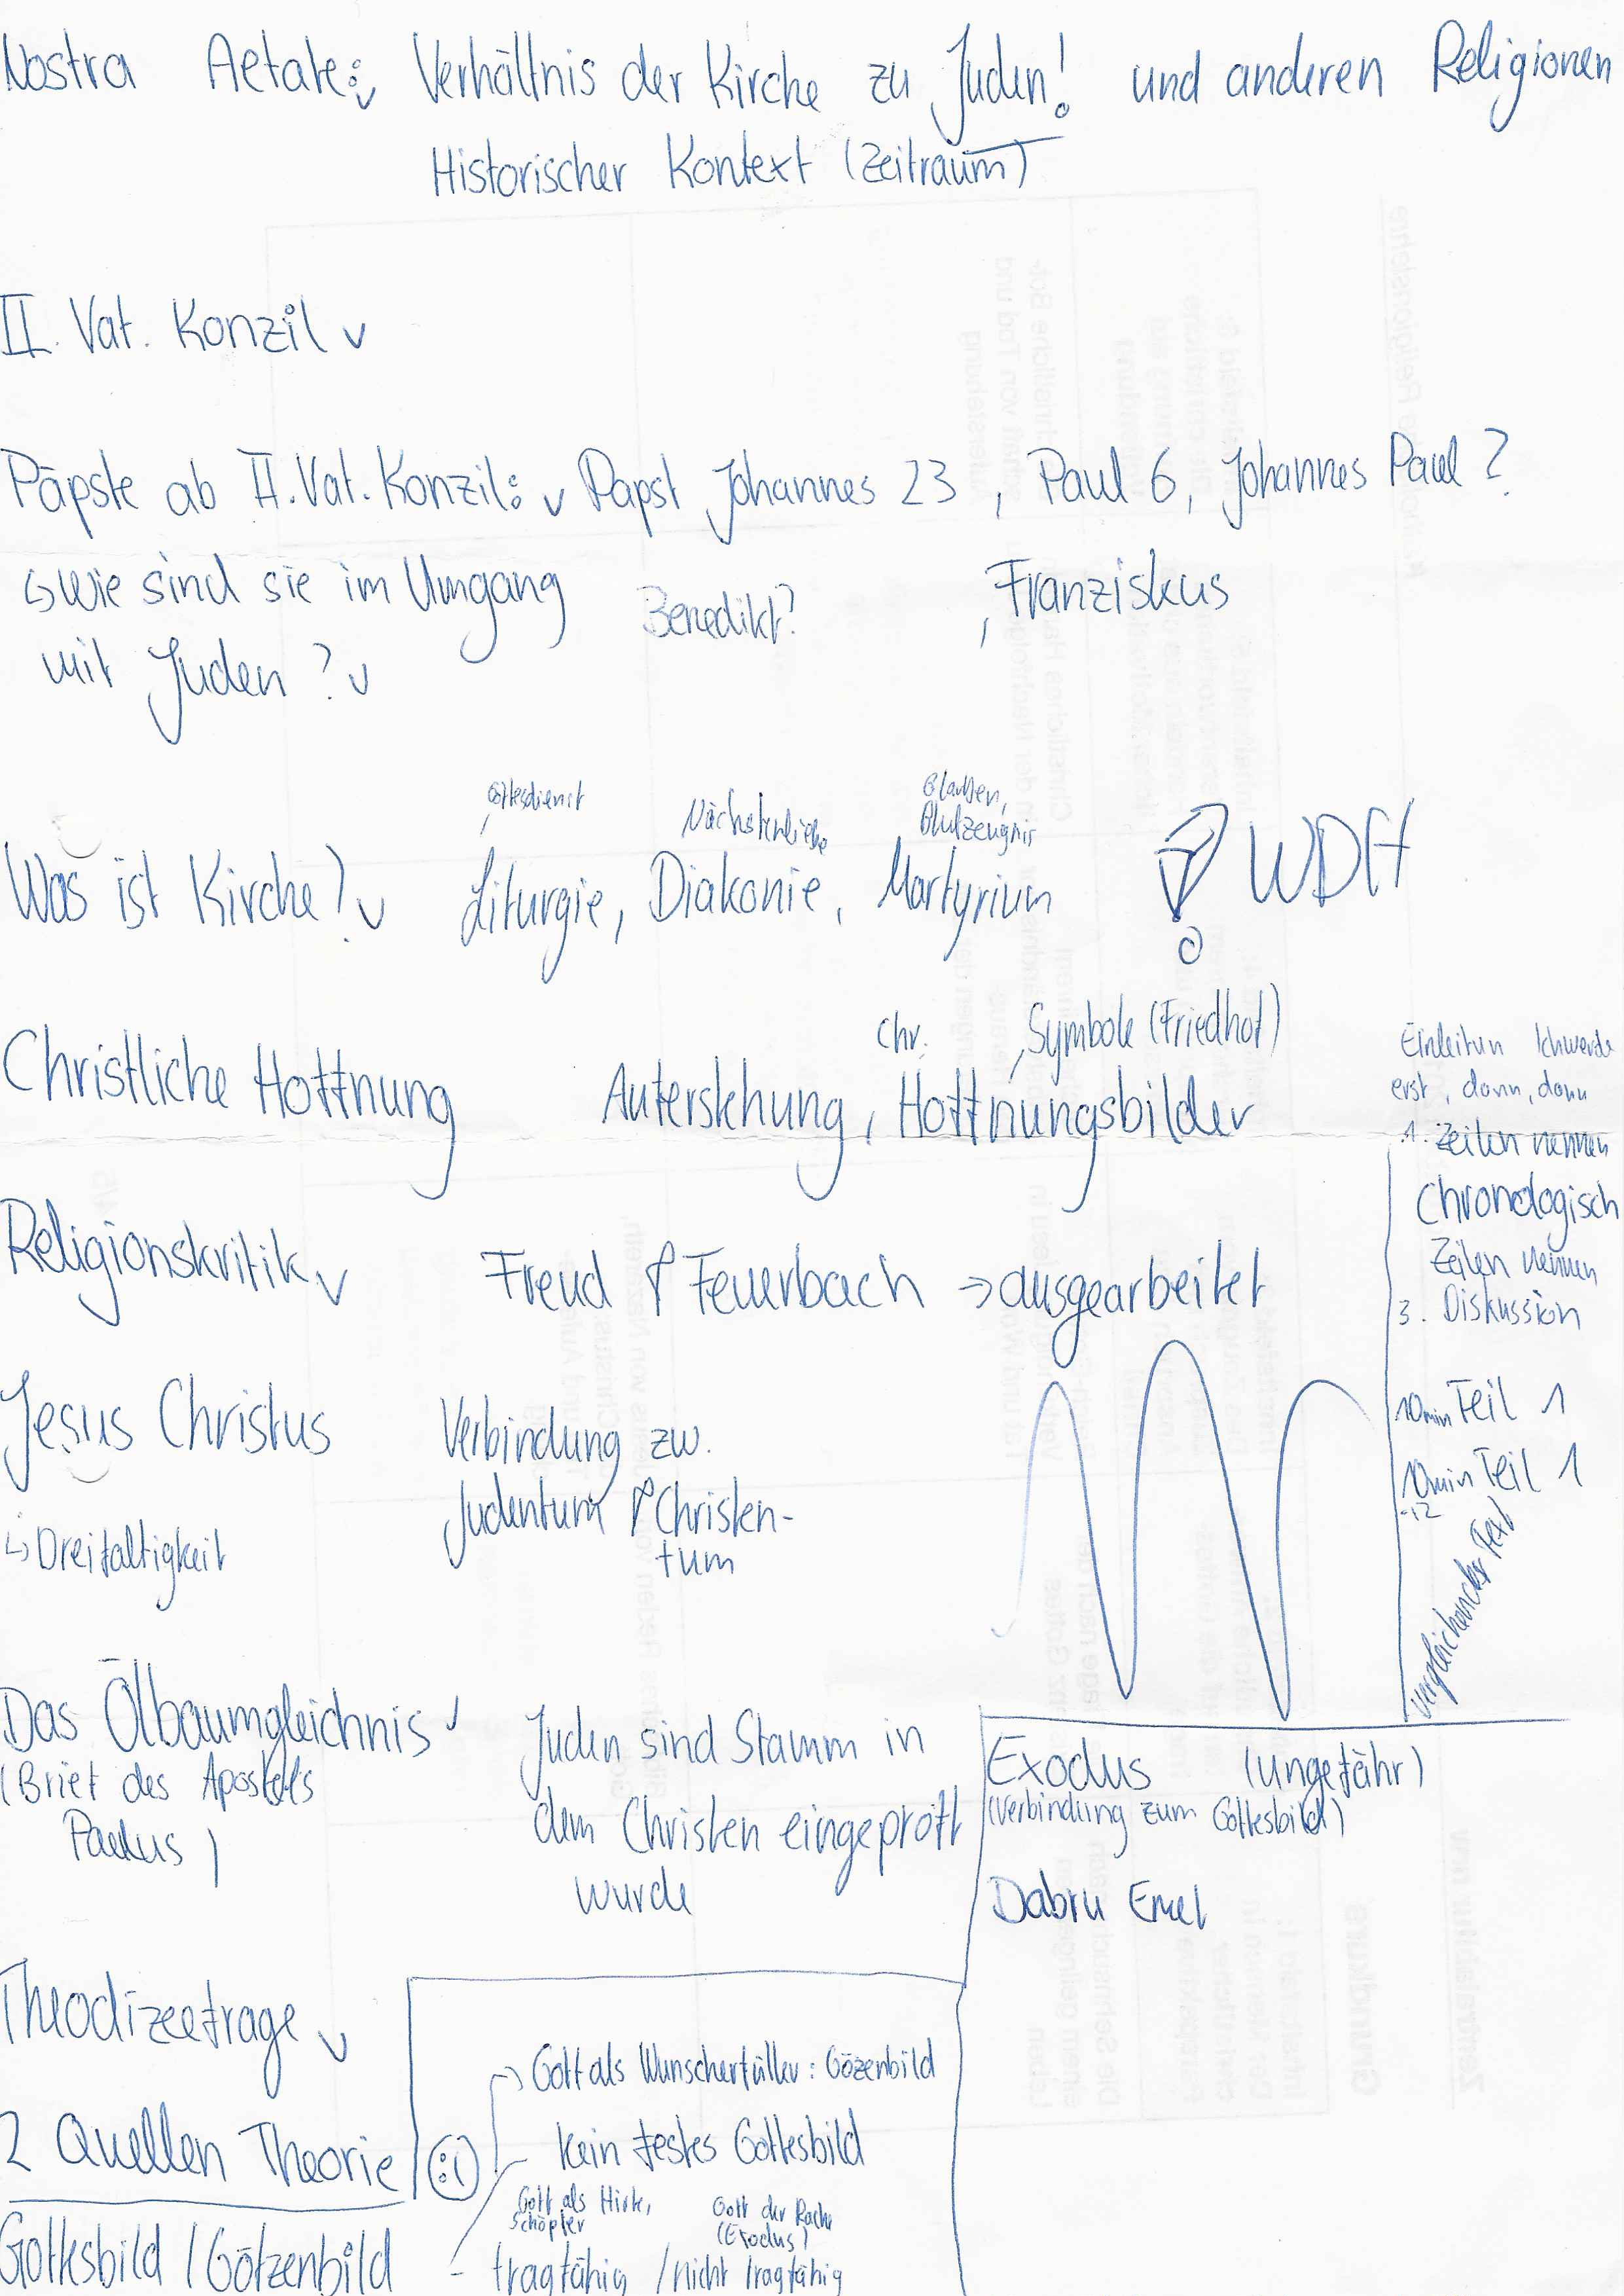 Nostra Aetate: Verhältnis der Kirche zu Juden! und anderen Religionen
Historischer Kontext (Zeitraum)
II. Vat. Konzil
Päpste ab II. Vat. Konzil: Papst Johannes 23, Paul 6, Johannes Paul?
↳ wie sind sie im Umgang mit Juden?
Benedikt?
, Franziskus
Gottesdienst
Nächstenliebe
Glauben,
Blutzeugnis
Was ist Kirche? Liturgie, Diakonie, Martyrium
WDH
Chr. Symbole (Friedhof)
Christliche Hoffnung Auferstehung, Hoffnungsbilder
Religionskritik Freud & Feuerbach → ausgearbeitet
Einleitun Ich werde
erst, dann, dann
1. Zeilen nennen
Chronologisch
Zeilen nennen
3. Diskussion
10min Teil 1
10min Teil 1
-12
vergleichender Text
Jesus Christus
↳ Dreifaltigkeit
Verbindung zw.
Judentum & Christen-
tum
Das Ölbaumgleichnis
(Brief des Apostels
Paulus)
Juden sind Stamm in
dem Christen eingepropft
wurde
Exodus (ungefähr)
(Verbindung zum Gottesbild)
Dabru Emet
Theodizeefrage
2 Quellen Theorie
Gottesbild / Götzenbild
Gott als Wunscherfüller: Gözenbild
kein festes Gottesbild
Gott als Hirte,
Schöpfer
Gott der Rache
(Exodus)
- tragfähig / nicht tragfähig